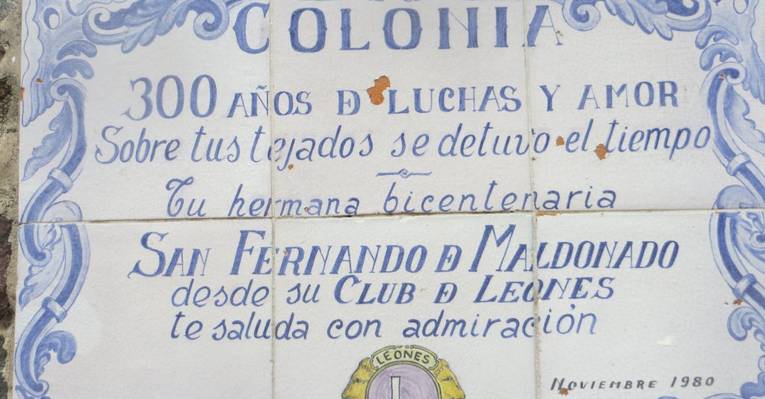 COLONIA
300 AÑOS D LUCHAS Y AMOR
Sobre tus tejados se detuvo el tiempo
Tu hermana bicentenaria
SAN FERNANDO D MALDONADO
desde su CLUB D LEONES
te saluda con admiración
LEONES
L
NOVIEMBRE 1980